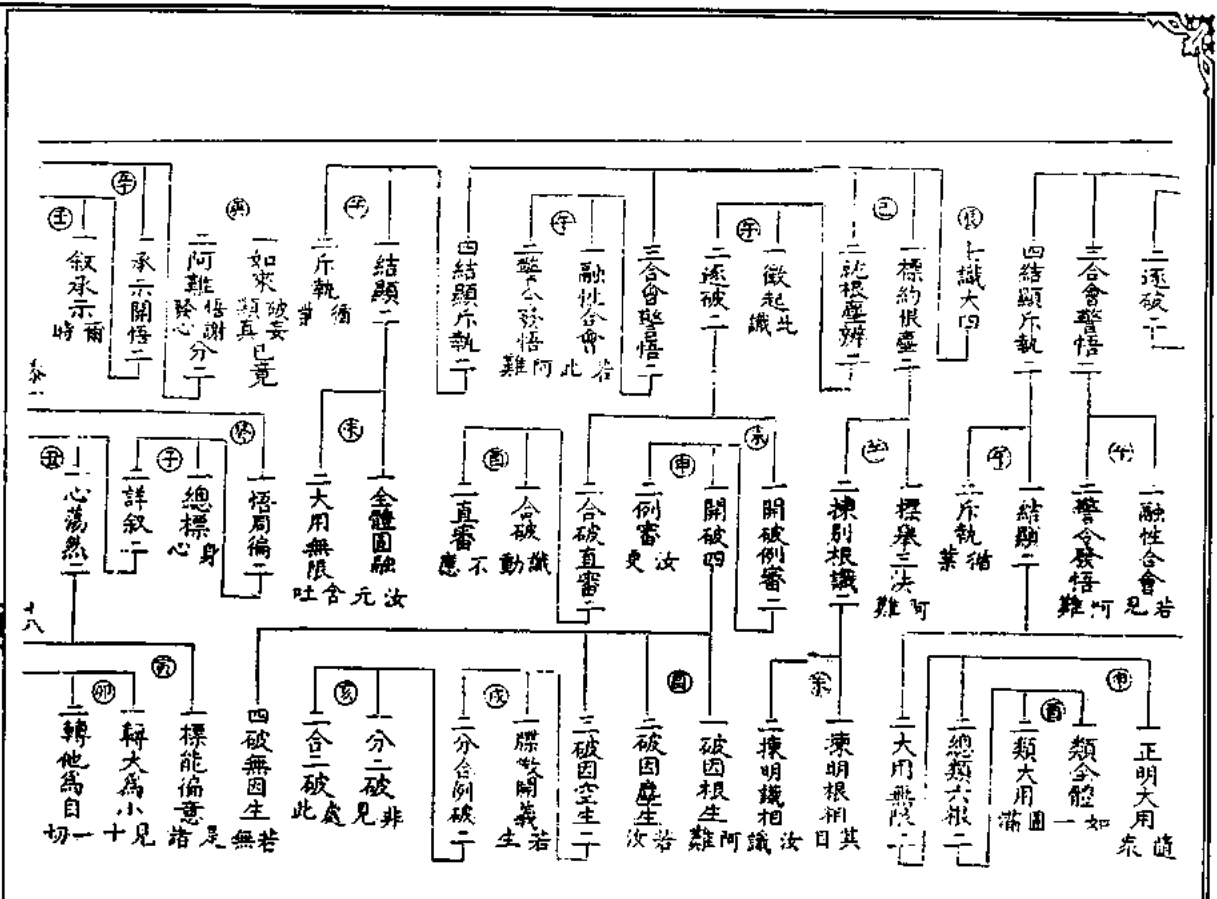 二逐破二
三合會警悟二
四結顯斥執二
辰
七識大四
己
一標約根塵二
二就根塵辨二
午
一徵起 此識
二逐破二
三合會警悟二
午
一融性合會 若此
二警令發悟 阿難
四結顯斥執二
一結顯二
午
二斥執 循業
庚
一如來破妄顯真已竟
二阿難悟謝發心分二
辛
一承示開悟二
壬
一叙承示 爾時
午
一融性合會 若見
二警令發悟 阿難
一結顯二
午
二斥執 循業
一標舉三決 阿難
二揀別根識二
未
一開破例審二
申
一開破四
二例審 更汝
二合破直審二
酉
一合破 識動
二直審 不應
未
一全體圓融 汝元
二大用無限 含吐
癸
一悟周徧二
子
一總標 身心
二詳叙二
丑
一心蕩然二
申
一正明大用 隨眾
二總類六根二
酉
一類全體 如一
二類大用 圓滿
二大用無限二
一揀明根相 其目
二揀明識相 汝識
酉
一破因根生 阿難
二破因塵生 若汝
三破因空生二
戌
一牒徵開義 若生
二分合例破二
亥
一分二破 非見
二合二破 處此
四破無因生 若無
寅
一標能徧意 是諸
卯
一轉大為小 見十
二轉他為自 一切
十八